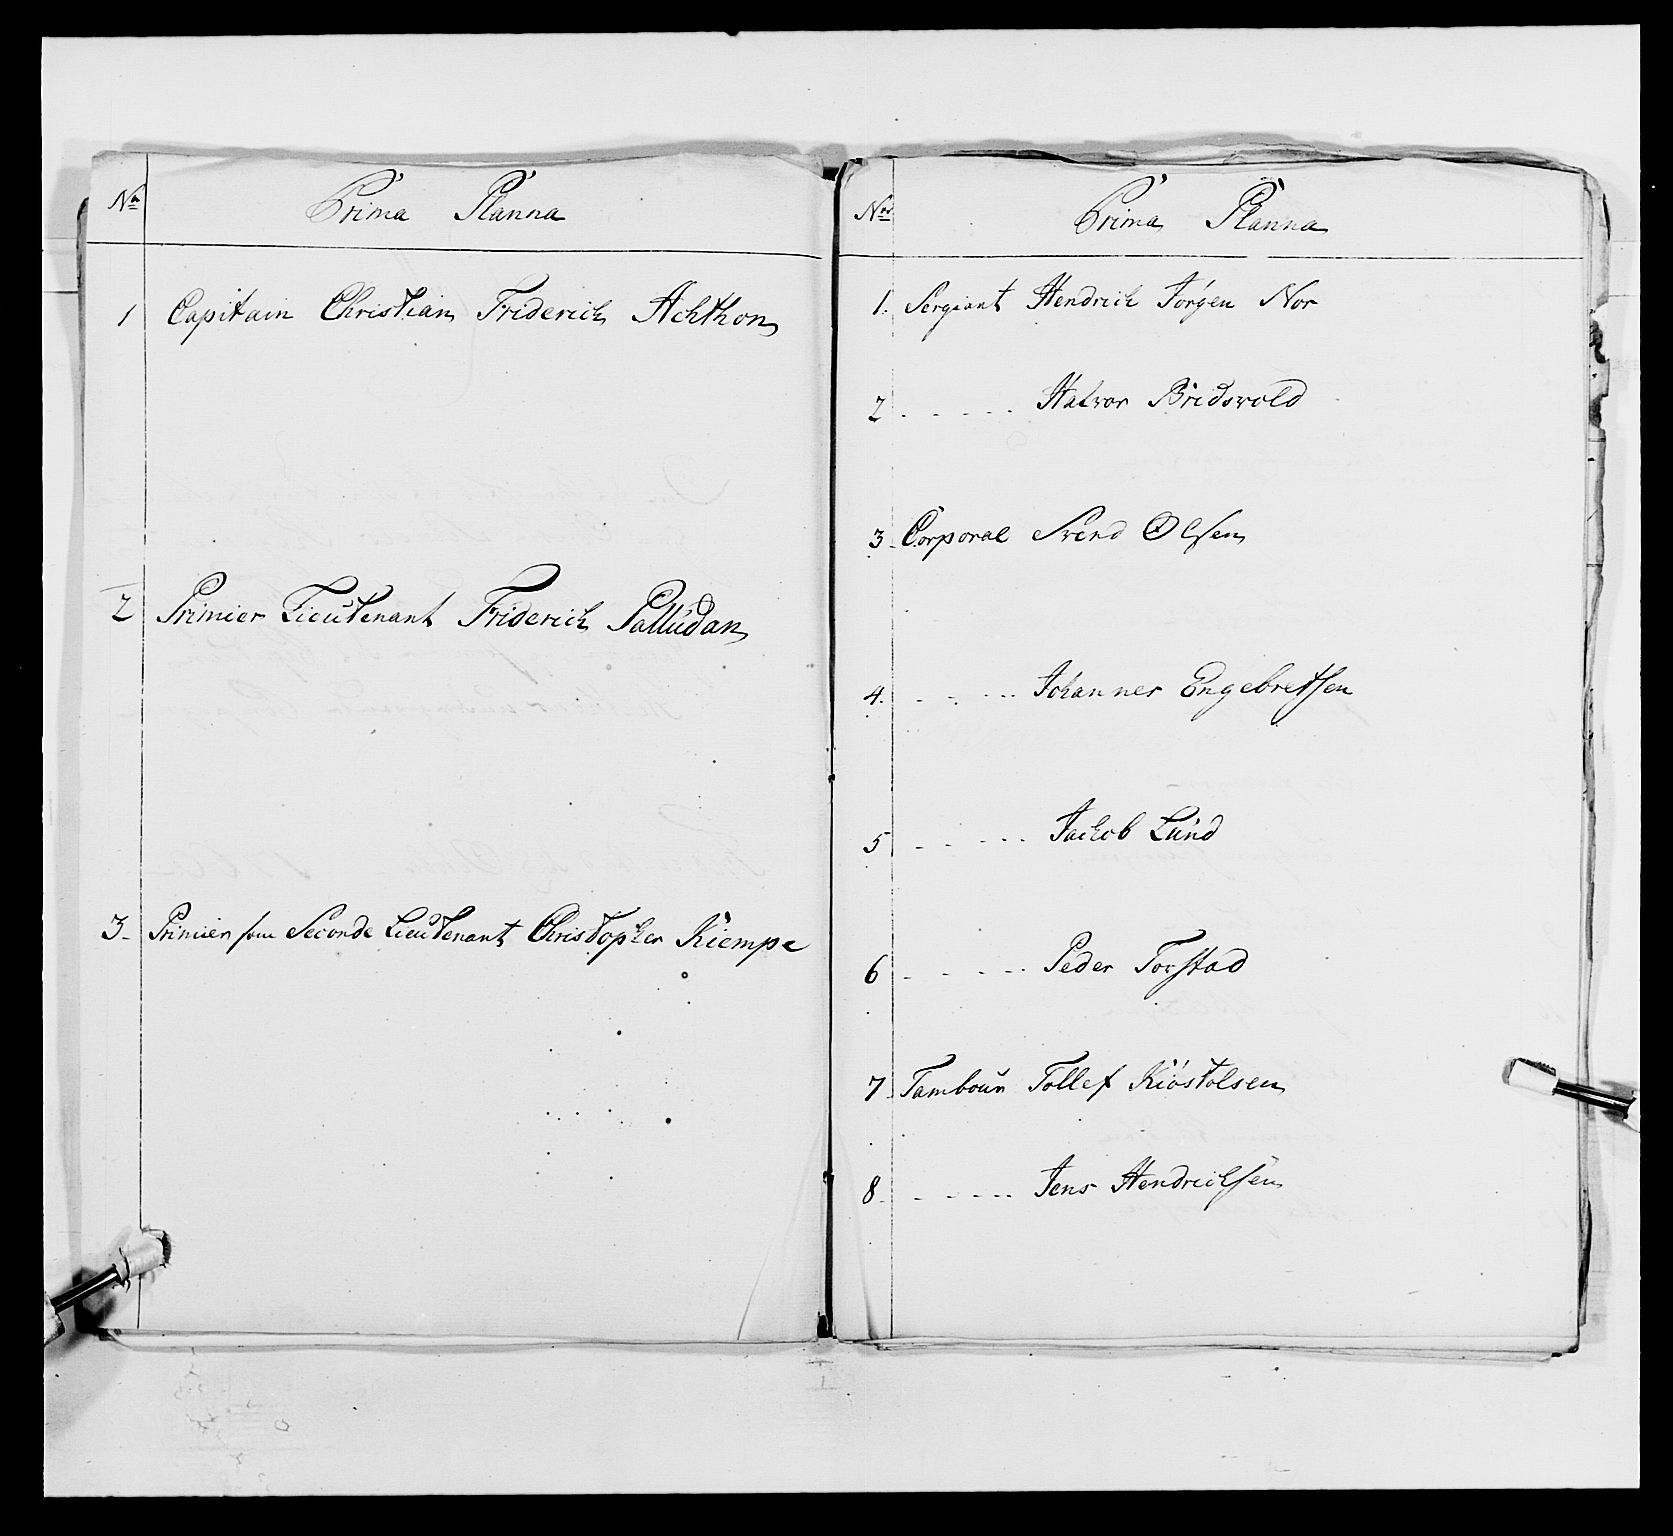 No Prima Planna
1 Capitain Christian Friderich Achthon
2 Primier Lieutenant Friderich Palludan
3 Primier som Seconde Lieutenant Christopher Kiempe
No Prima Planna
1. Sergiant Hendrich Jørgen Nor
2 - - - - - Halvor Bridsvold
3. Corporal Svend Olsen
4. - - - - - Johannes Engebretsen
5 - - - - - Jachob Lund
6 - - - - - Peder Torstad
7. Tambour Tollef Kiøstolsen
8. - - - - - Jens Hendrichsen